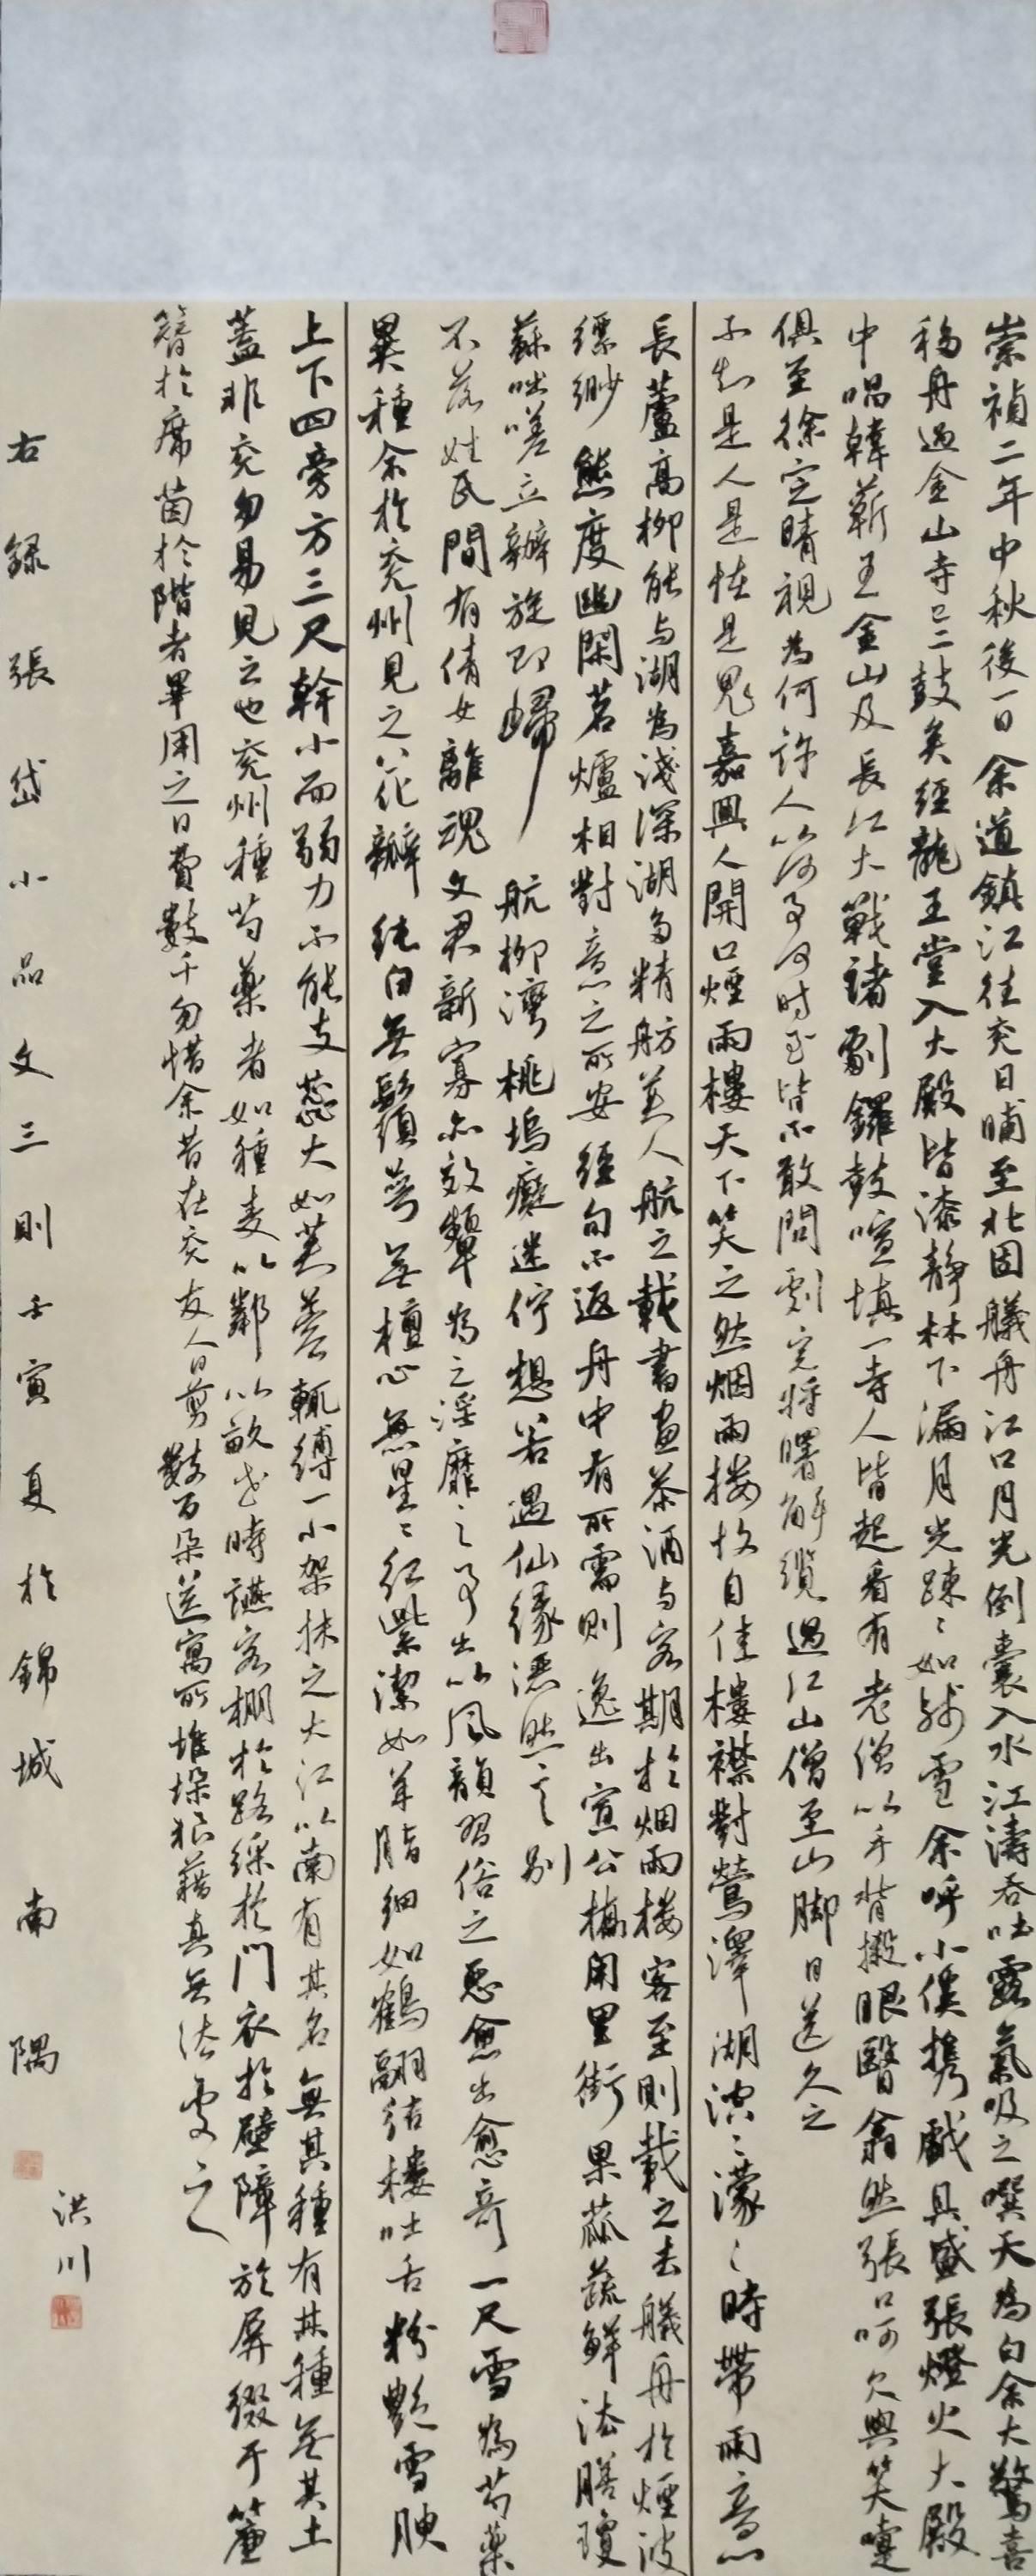 崇禎二年中秋後一日余道鎮江往兖日晡至北固艤舟江口月光倒囊入水江濤吞吐露氣吸之噀天為白余大驚喜
移舟過金山寺已二鼓矣經龍王堂入大殿皆漆靜林下漏月光疎〻如殘雪余呼小傒携戲具盛張燈火大殿
中唱韓蘄王金山及長江大戰諸劇鑼鼓喧填一寺人皆起看有老僧以手背摋眼翳翕然張口呵欠與笑嚏
俱至徐定睛視為何許人以何事何時至皆不敢問劇完將曙解纜過江山僧至山脚目送久之
不知是人是怪是鬼嘉興人開口煙雨樓天下笑之然烟雨楼故自佳樓襟對鶯澤湖涳〻濛〻時帶雨意
長蘆高柳能与湖為淺深湖多精舫美人航之載書畫茶酒与客期於烟雨楼客至則載之去艤舟於煙波
縹緲態度幽閑茗爐相對意之所安經旬不返舟中有所需則逸出宣公橋甪里街果蓏蔬鮮法膳瓊
蘇咄嗟立辦旋即歸航柳灣桃塢癡迷佇想若遇仙缘灑然言别
不落姓氏間有倩女離魂文君新寡亦效顰為之淫靡之事出以風韻習俗之惡愈出愈奇一尺雪為芍藥
異種余於兖州見之花瓣純白無鬚萼無檀心無星〻红紫潔如羊脂细如鶴翮结樓吐舌粉艷雪腴
上下四旁方三尺幹小而弱力不能支蕊大如芙蓉輒缚一小架扶之大江以南有其名無其種有其種無其土
蓋非兖勿易見之也兖州種芍藥者如種麦以鄰以畝花時讌客棚於路綵於門衣於壁障於屏缀于簾
簪於席茵於階者畢用之日費數千勿惜余昔在兖友人日剪數百朵送寓所堆垛狼藉真無法處之
右録張岱小品文三則壬寅夏於錦城南隅
洪川